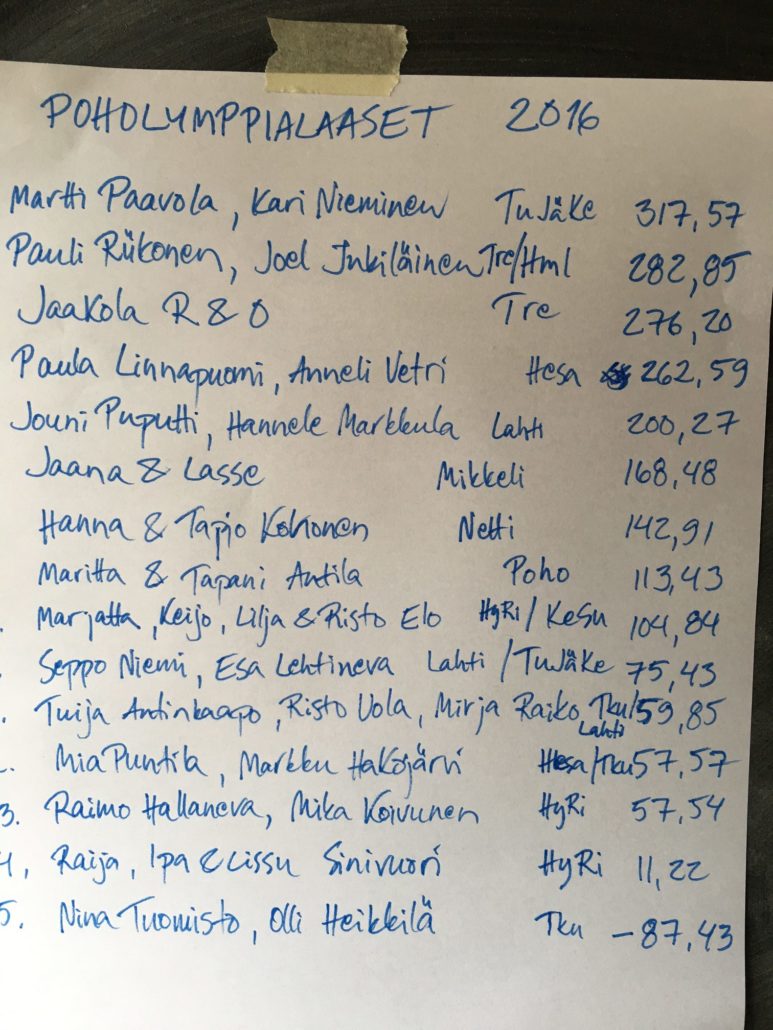 POHOLYMPPIALAASET 2016
Martti Paavola, Kari Nieminen TuJäKe 317,57
Pauli Riikonen, Joel Inkiläinen Tre/Hml 282,85
Jaakola R & O Tre 276,20
Paula Linnapuomi, Anneli Vetri Hesa 262,59
Jouni Puputti, Hannele Markkula Lahti 200,27
Jaana & Lasse Mikkeli 168,48
Hanna & Tapio Kohonen Netti 142,91
Maritta & Tapani Antila Poho 113,43
. Marjatta, Keijo, Lilja & Risto Elo HyRi/KeSu 104,84
. Seppo Niemi, Esa Lehtineva Lahti/TuJäKe 75,43
. Tuija Antinkaapo, Risto Uola, Mirja Raiko Tku/ 59,85
Lahti
. Mia Puntila, Markku Hakojärvi Hesa/Tku 57,57
3. Raimo Hallaneva, Mika Koivunen HyRi 57,54
4, Raija, Ipa & Lissu Sinivuori HyRi 11,22
5. Nina Tuomisto, Olli Heikkilä Tku -87,43